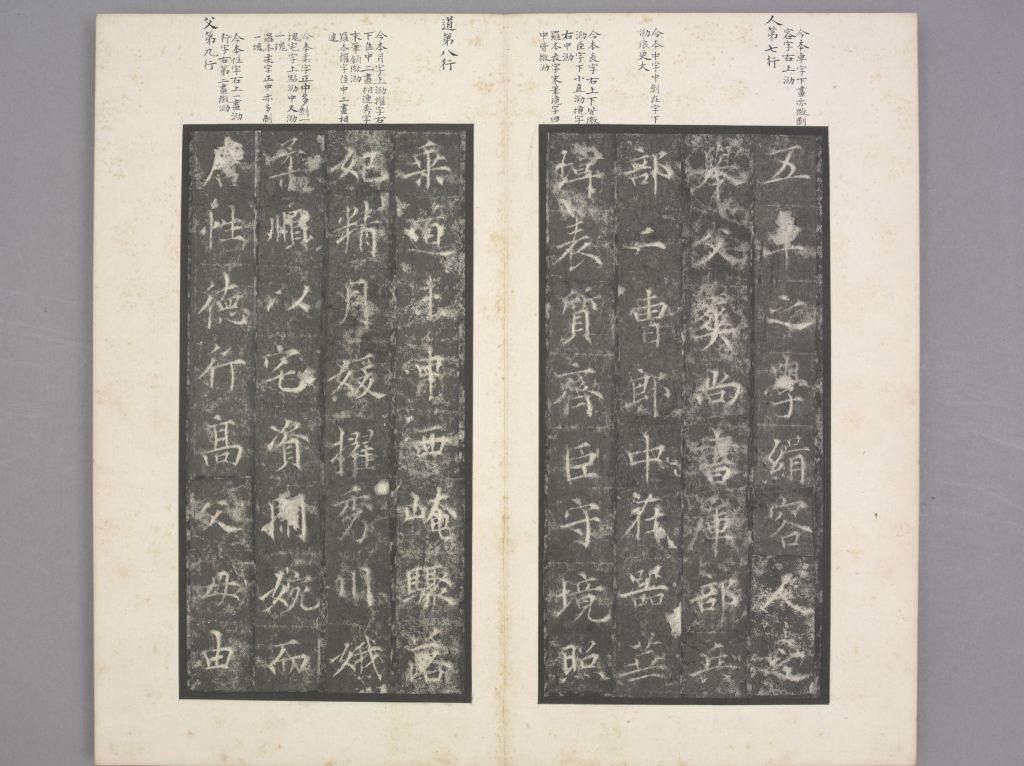 人第七行
今本車字下畫亦微剝
容字右上泐
今本中字中剝在字下
泐痕更大
今本表字右上下皆微
泐臣字下小直泐境字
右中泐
羅本表字末筆境字四
中皆微泐
五車之學絹容人之
舉父奭尚書庫部兵
部二曹郎中莊器
瑋表質齊臣守境照
道第八行
今本月字上泐擢字右
下隹中二畫相連秀字
末筆鉤微泐
羅本擢字隹中二畫相
連
今本柔字正中多剝一
塊宅字上點泐中又泐
一塊
羅本柔字正中亦多剝
一塊
父第九行
今本性字右上一畫泐
行字右第二畫微泐
乘道未西崦驟落
妃精月媛擢秀川娥
柔順以宅資閑婉而
居性德行高父母由